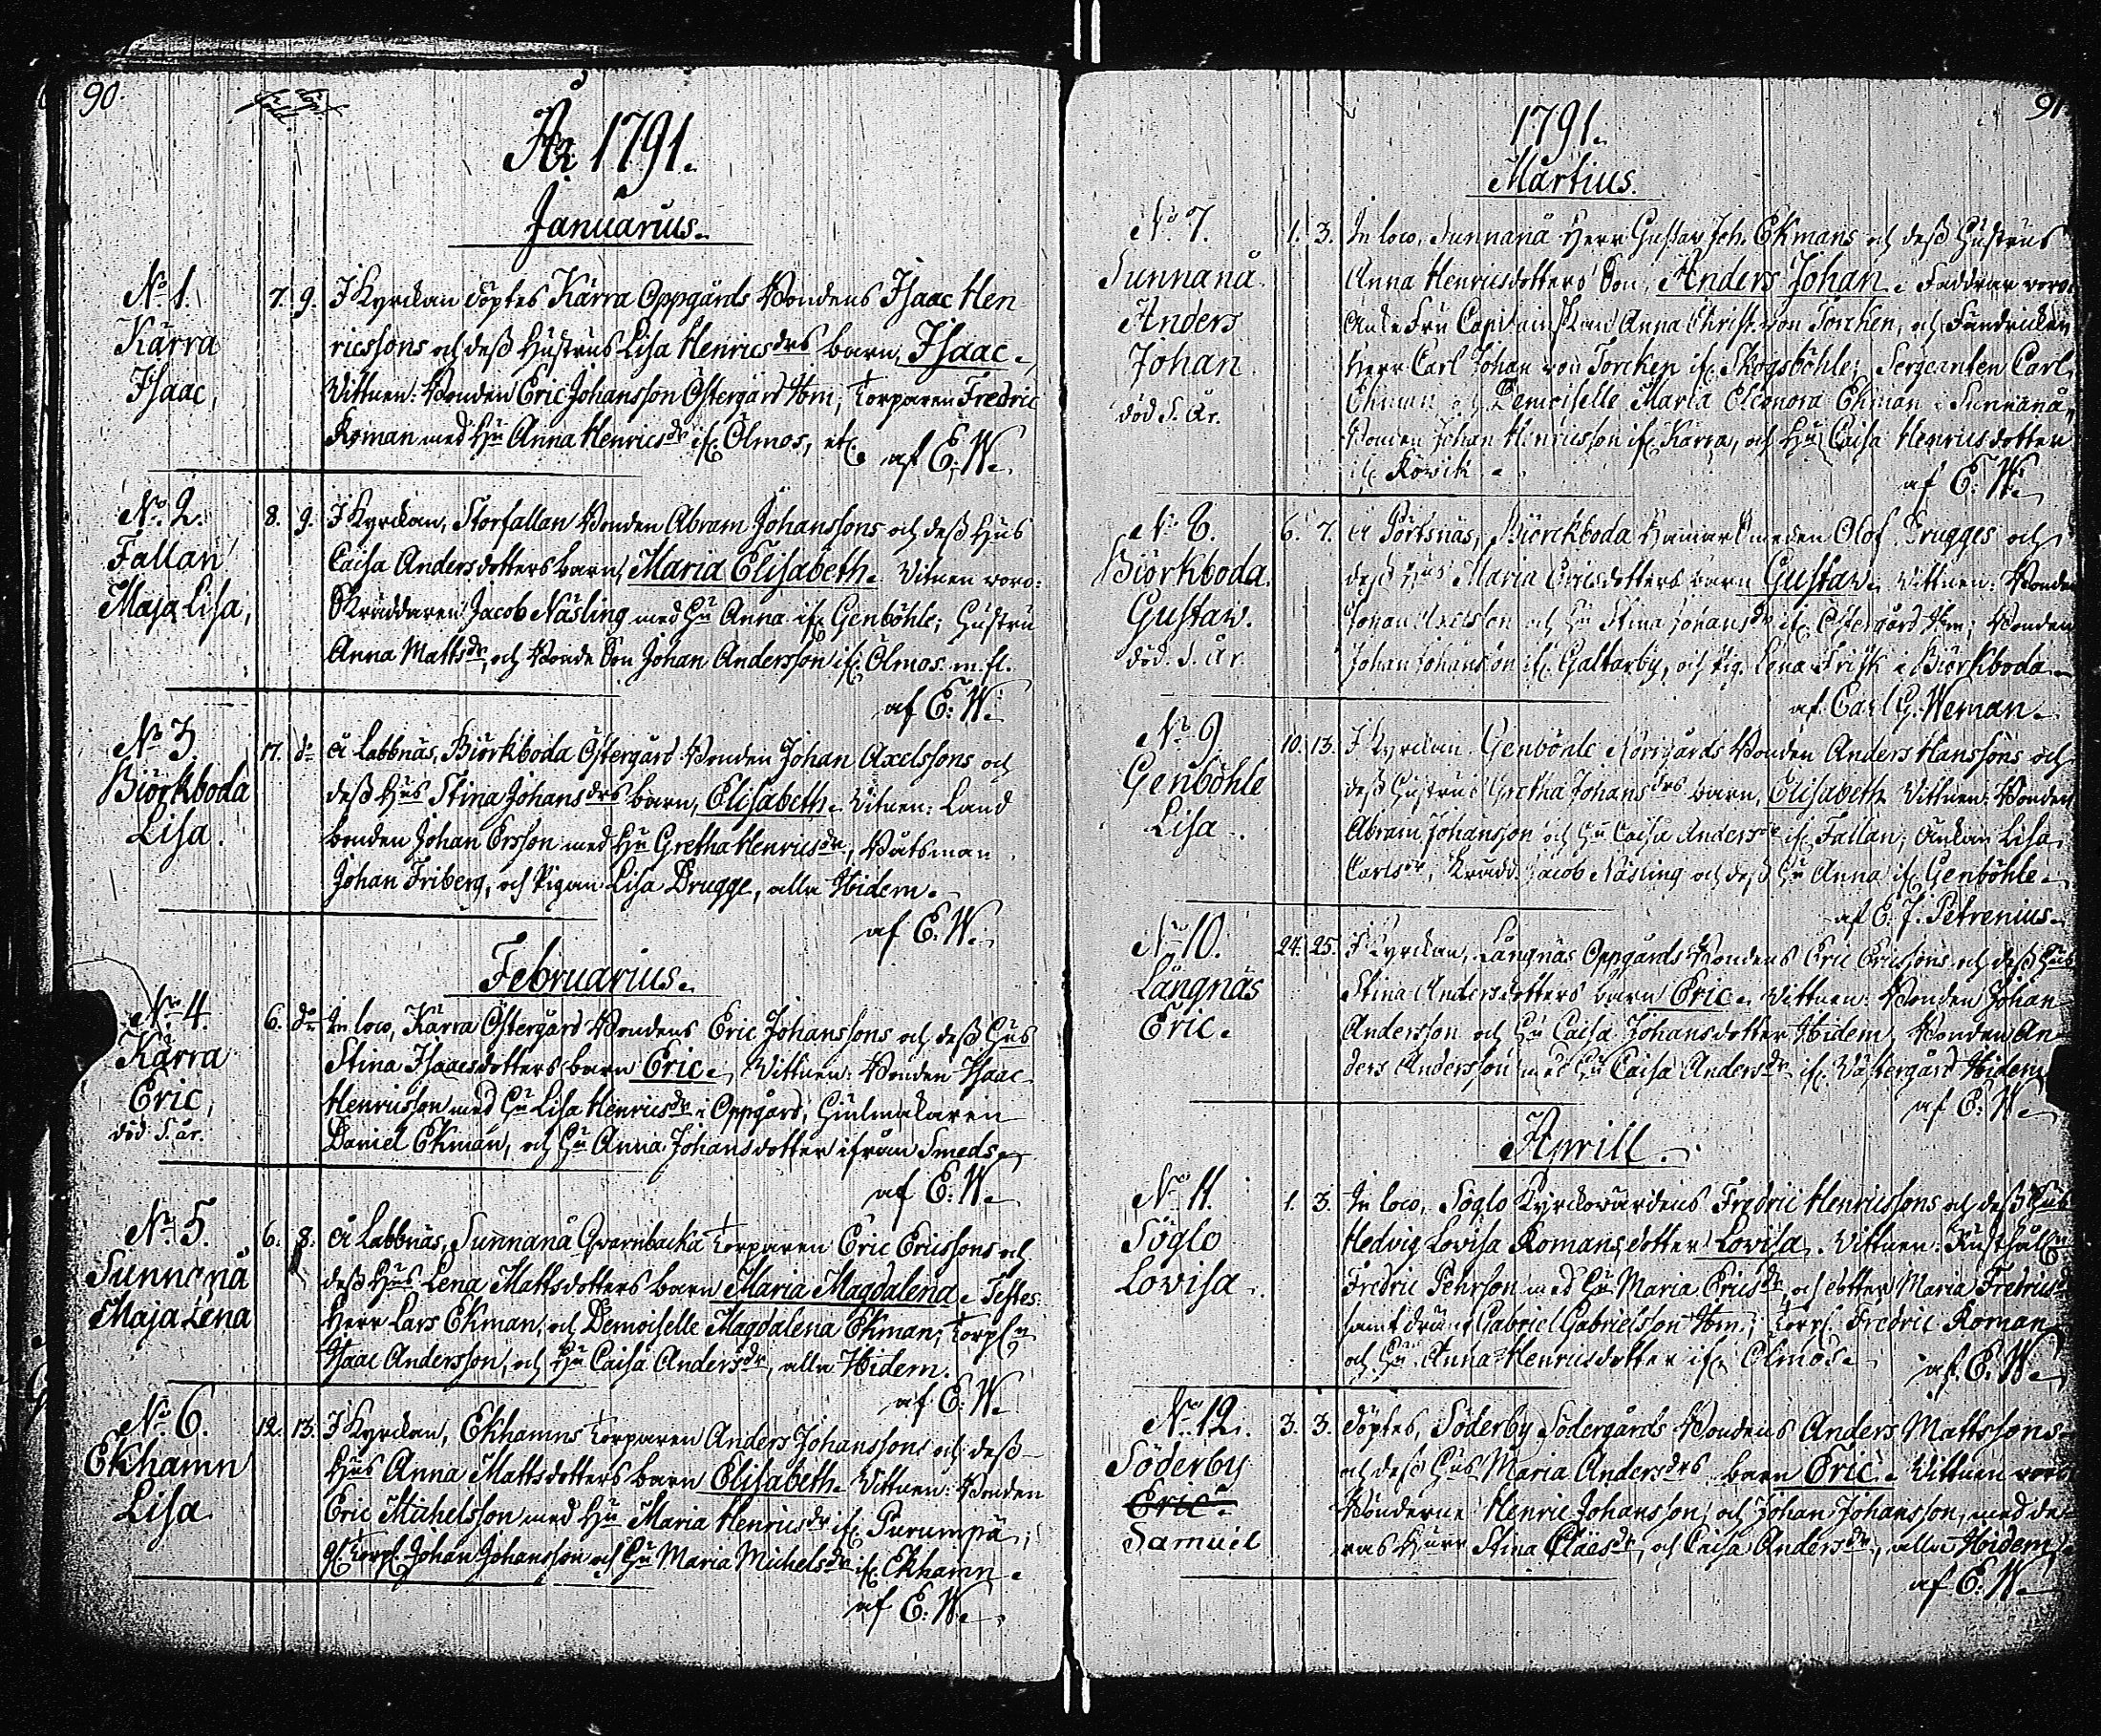 90.
Född. Döpt.
År 1791.
Januarius.
No 1. Kärra Isaac,
7. 9. I Kyrckan döptes Kärra Oppgårds Bondens Isaac Hen
ricssons och dess Hustrus Lisa Henricsdrs barn, Isaac.
Vittnen: Bonden Eric Johansson Östergård Ibm, Torparen Fredric
Roman med Hu Anna Henricsdr if. Ölmos, etc.
af E: W.
No 2. Fallan Maja Lisa,
8. 9. I Kyrckan, Storfallan Bonden Abram Johanssons och dess Hus
Caisa Andersdotters barn, Maria Elisabeth. Vitnen woro:
Skräddaren Jacob Näsling med Hu Anna if. Genböhle; Hustru
Anna Mattsdr, och Bonde Son Johan Andersson if. Ölmos m. fl.
af E: W.
No 3. Biörkboda Lisa.
17. do å Labbnäs, Biörkboda Östergård Bonden Johan Axelssons och
dess Hus Stina Johansdrs barn, Elisabeth. Vitnen: Land
bonden Johan Ersson med Hu Gretha Henricsdr, Båtsman
Johan Friberg, och Pigan Lisa Brugge, alla Ibidem.
af E: W.
Februarius.
No 4. Kärra Eric, död S. år.
6. do In loco, Kärra Östergård Bondens Eric Johanssons och dess Hus
Stina Isaacsdotters barn Eric. Vittnen: Bonden Isaac
Henricsson med Hu Lisa Henricsdr i Oppgård, Hiulmakaren
Daniel Ekman, och Hu Anna Johansdotter ifrån Smeds.
af E: W.
No 5. Sunnanå Maja Lena
6. 8. å Labbnäs, Sunnanå Qvarnbacka Torparen Eric Ericssons och
dess Hus Lena Mattsdotters barn Maria Magdalena. Testes:
Herr Lars Ekman, och Demoiselle Magdalena Ekman; Torp:n
Isaac Andersson, och Hu Caisa Andersdr, alla Ibidem.
af E: W.
No 6. Ekhamn Lisa
12. 13. I Kyrckan, Ekhamns Torparen Anders Johanssons och dess
Hus Anna Mattsdotters barn Elisabeth. Vittnen: Bonden
Eric Michelsson med Hu Maria Henricsdr if. Purumpä;
Torp. Johan Johansson och Hu Maria Michelsdr if. Ekhamn.
af E: W.
91
1791.
Martius.
No 7. Sunnanå Anders Johan. död S. År.
1. 3. In loco, Sunnanå Herr Gustav Joh. Ekmans och dess Hustrus
Anna Henricsdotters Son, Anders Johan. Faddrar woro
Fru Anna Christ. von Torcken, och Fändricken
Herr Carl Johan von Torcken if. Skogsböhle; Sergeanten Carl
Ekman och Demoiselle Maria Eleonora Ekman i Sunnanå,
Bonden Johan Henricsson if. Kärra, och Hu Caisa Henricsdotter
if. Rövik.
af E: W.
No 8. Biörkboda Gustaw. död. S. År.
6. 7. å Pörtsnäs, Biörckboda Hamarsmeden Olof Brugges och
dess Hus Maria Ericsdotters barn Gustaw. Vittnen: Bonden
Johan Axelsson och Hu Stina Johansdr if. Östergård Ibm; Bonden
Johan Johansson if. Galtarby, och Pig. Lena Frisk i Biörkboda.
af Carl G. Weman.
No 9. Genböhle Lisa.
10. 13. I Kyrckan Genböhle Norrgårds Bonden Anders Hanssons och
dess Hustrus Gretha Johansdrs barn, Elisabeth. Vittnen: Bonden
Abram Johansson och Hu Caisa Andersdr if. Fallan; Änkan Lisa
Carlsdr, Skrädd. Jacob Näsling och dess Hu Anna if. Genböhle.
af E. J. Petrenius.
No 10. Långnäs Eric.
24. 25. I Kyrckan, Långnäs Oppgårds Bondens Eric Ericssons och dess Hus
Stina Andersdotters barn Eric. Vittnen: Bonden Johan
Andersson och Hu Caisa Johansdotter Ibidem, Bonden An-
ders Andersson med Hu Caisa Andersdr if. Västergård Ibidem
af E: W.
Aprill.
No 11. Söglo Lovisa.
1. 3. In loco, Söglo Kyrckovärdens Fredric Henricssons och dess Hus
Hedvig Lovisa Romans dotter Lovisa. Vittnen: Rusthåll:n
Fredric Pehrson med Hu Maria Ericsdr, och dotter Maria Fredricsdr
samt dräng Gabriel Gabrielsson Ibm; Torp. Fredric Roman
och Hu Anna Henricsdotter if. Ölmos.
af E: W.
No 12. Söderby Eric. Samuel
3. 3. döptes, Söderby Södergårds Bondens Anders Mattssons
och dess Hus Maria Andersdrs barn Eric. Vittnen woro
Bönderne Henric Johansson, och Johan Johansson, med de-
ras Hurr Stina Claesdr, och Caisa Andersdr, alla Ibidem.
af E: W.